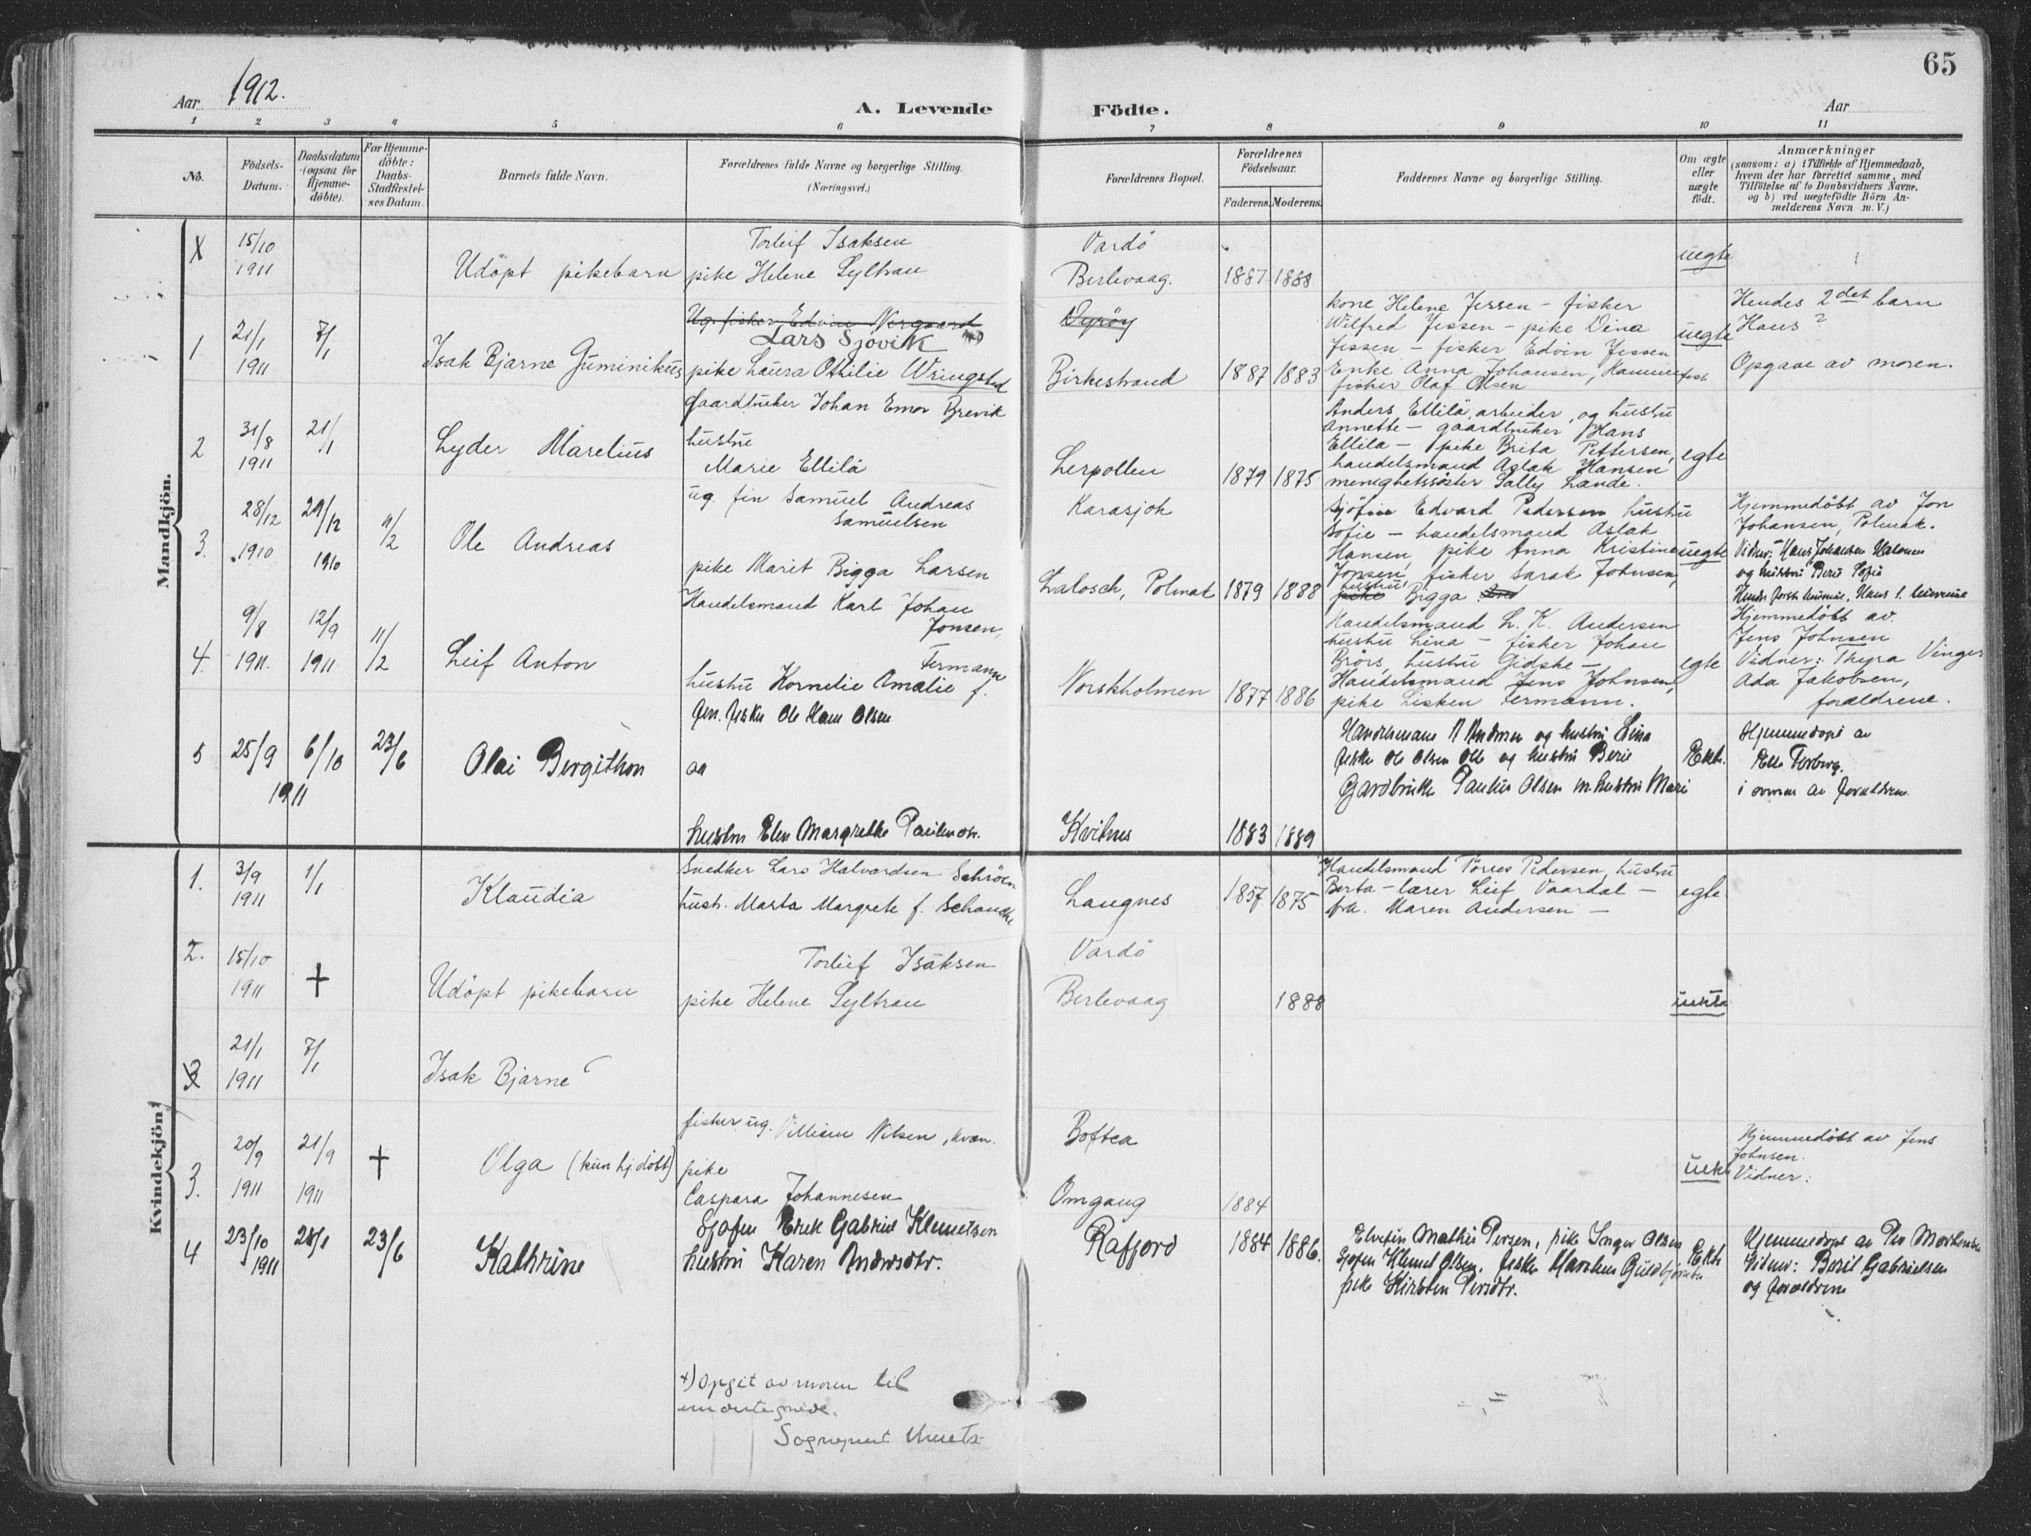 65
Aar 1912.
A. Levende Födte.
Aar
1 2 3 4 5 6 7 8 9 10 11
No.
Födsels-Datum.
Daabsdatum (ogsaa for Hjemmedöbte).
For Hjemmedöbte: Daabs-Stadfæstelses Datum.
Barnets fulde Navn.
Forældrenes fulde Navne og borgerlige Stilling.
(Næringsvei.)
Forældrenes Bopæl.
Forældrenes Födselsaar.
Faderens. Moderens.
Faddernes Navne og borgerlige Stilling.
Om ægte eller uægte födt.
Anmærkninger
(saasom: a) i Tilfælde af Hjemmedaab,
hvem der har forrettet samme, med
Tilföielse af to Daabsvidners Navne,
og b) ved uægtefödte Börn Anmelderens Navn m. V.)
Mandkjön.
X 15/10 1911
Udöpt pikebarn
Torleif Isaksen
pike Helene Syltrau
Vardö
Berlevaag. 1887 1888
uegte
1 21/1 1911 7/1
Isak Bjarne Guminikus
Ug. fisker Edvin Norgaard
Lars Sjövik
pike Laura Othilie Wringsted
Dyröy
Birkestrand 1887 1883
kone Helene Jessen - fisker
Wilfred Jessen - pike Dina
Jessen - fisker Edvin Jessen
Enke Anna Johansen, Hammerfest
fisker Olaf Olsen
uegte
Hendes 2det barn
Hans ?
Opgave av moren.
2 31/8 1911 21/1
Lyder Marelius
Gaardbruker Johan Emor Brevik
hustru
Marie Ellilä
Lerpollen 1879 1875
Anders Ellilä, arbeider, og hustru
Annette - gaardbruker Hans
Ellila - pike Brita Pettersen,
handelsmand Aslak Hansen
menighetssöster Sally Lande.
egte
3. 28/12 1910 29/12 1910 11/2
Ole Andreas
ug. fin Samuel Andreas
Samuelsen
pike Marit Bigga Larsen
Karasjok
Lalosch, Polmak 1879 1888
Sjöfin Edvard Pedersen hustru
Sofie - handelsmand Aslak
Hansen, pike Anna Kristine
Jonsen, fisker Sarak Johnsen,
hustru
pike Bigga
uegte
Hjemmedöbt av Jon
Johansen, Polmak.
Vidner: Hans Johansen Halonen
og hustru Berit Sofie
4. 9/8 1911. 12/9 1911 11/2
Leif Anton
Handelsmand Karl Johan
Jonsen,
Fermann
hustru Kornelie Amalie f.
Norskholmen 1877 1886
Handelsmand L. K. Andersen
hustru Lina - fisker Johan
Brörs, hustru Gidske -
Handelsmand Jens Johnsen,
pike Lisken Fermann.
egte
Hjemmedöbt av
Jens Johnsen
Vidner: Thyra Vinger
Ada Jakobsen,
forældrene.
5 25/9 6/10 1911 23/6
Olai Bergithon
fin. fisker Ole Hans Olsen
og
hustru Elen Margrethe Paulsdtr.
Kvitnes 1883 1889
Handelsmann A Andersen og hustru Lina
fisker Ole Olsen Olle og hustru Berit
Gardbruker Paulus Olsen m. hustru Mari
Ekte.
Hjemmedöpt av
Elle Torberg.
i overvær av forældrene
Kvindekjön
1. 3/9 1911 1/1
Klaudia
Snedker Lars Halvardsen Schröen
hust. Marta Margrete f. Schancke
Langnes 1857 1875
Handelsmand Törres Pedersen, hustru
Berta - lærer Leif Vaardal -
frk. Maren Andersen -
egte.
2. 15/10 1911 †
Udöpt pikebarn
Torleif Isaksen
pike Helene Syltrau
Vardö
Berlevaag 1888
uekte
3 21/1 1911 7/1
Isak Bjarne
3. 20/9 1911 21/9 1911 †
Olga (kun hj.döbt)
fisker ug. Villiam Nilsen, kvæn.
pike
Caspara Johannesen
Boftea
Omgang 1884
uekte
Hjemmedöbt av Jens
Johnsen.
Vidner:
4 23/10 1911 28/1 23/6
Kathrine
Sjöfin Erik Gabriel Klemetsen
hustru Karen Andersdtr.
Rafjord 1884 1886.
Elvefin Mathis Persen, pike Inger Olsen
Sjöfin Klemet Olsen, fisker
pike Kirsten Persdtr.
Ekte
Hjemmedöpt av Per Mortensen
Vidner: Beril Gabrielsen
og forældrene
x) Opgit av moren til
undertegnede.
Sogneprest